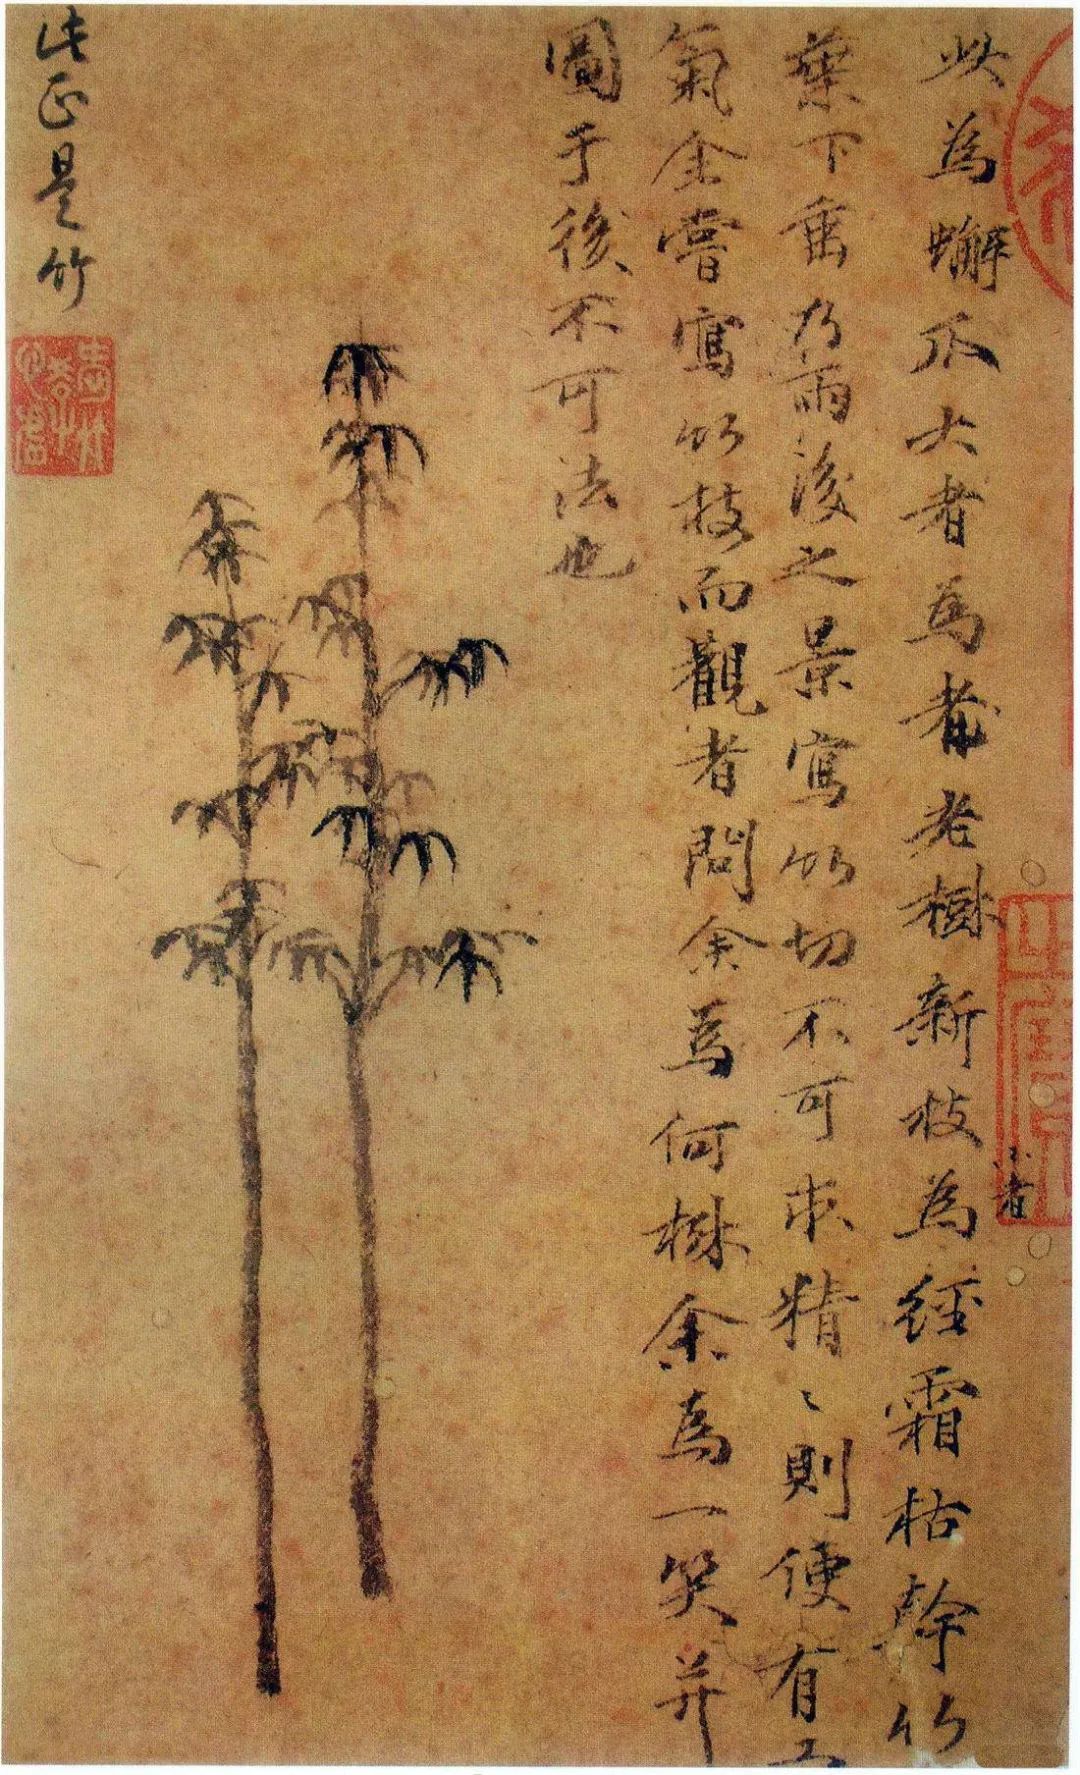 此為蠏爪大者為着老樹新枝為經霜枯幹竹
小者
葉下垂乃雨後之景寫竹切不可求精〻則便有工
氣余嘗寫竹枝而觀者問余為何樹余為一笑并
圖于後不可法也
此正是竹